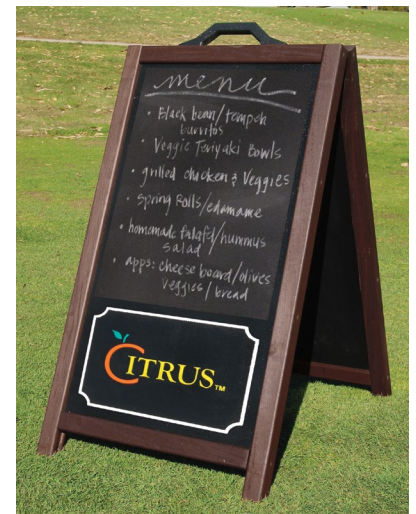 menu
• Black bean/tempeh
burritos
• Veggie Teriyaki Bowls
• grilled chicken & Veggies
• Spring Rolls/edamame
• homemade falafel/hummus
salad
• apps: cheese board/olives
Veggies/bread
CITRUS™